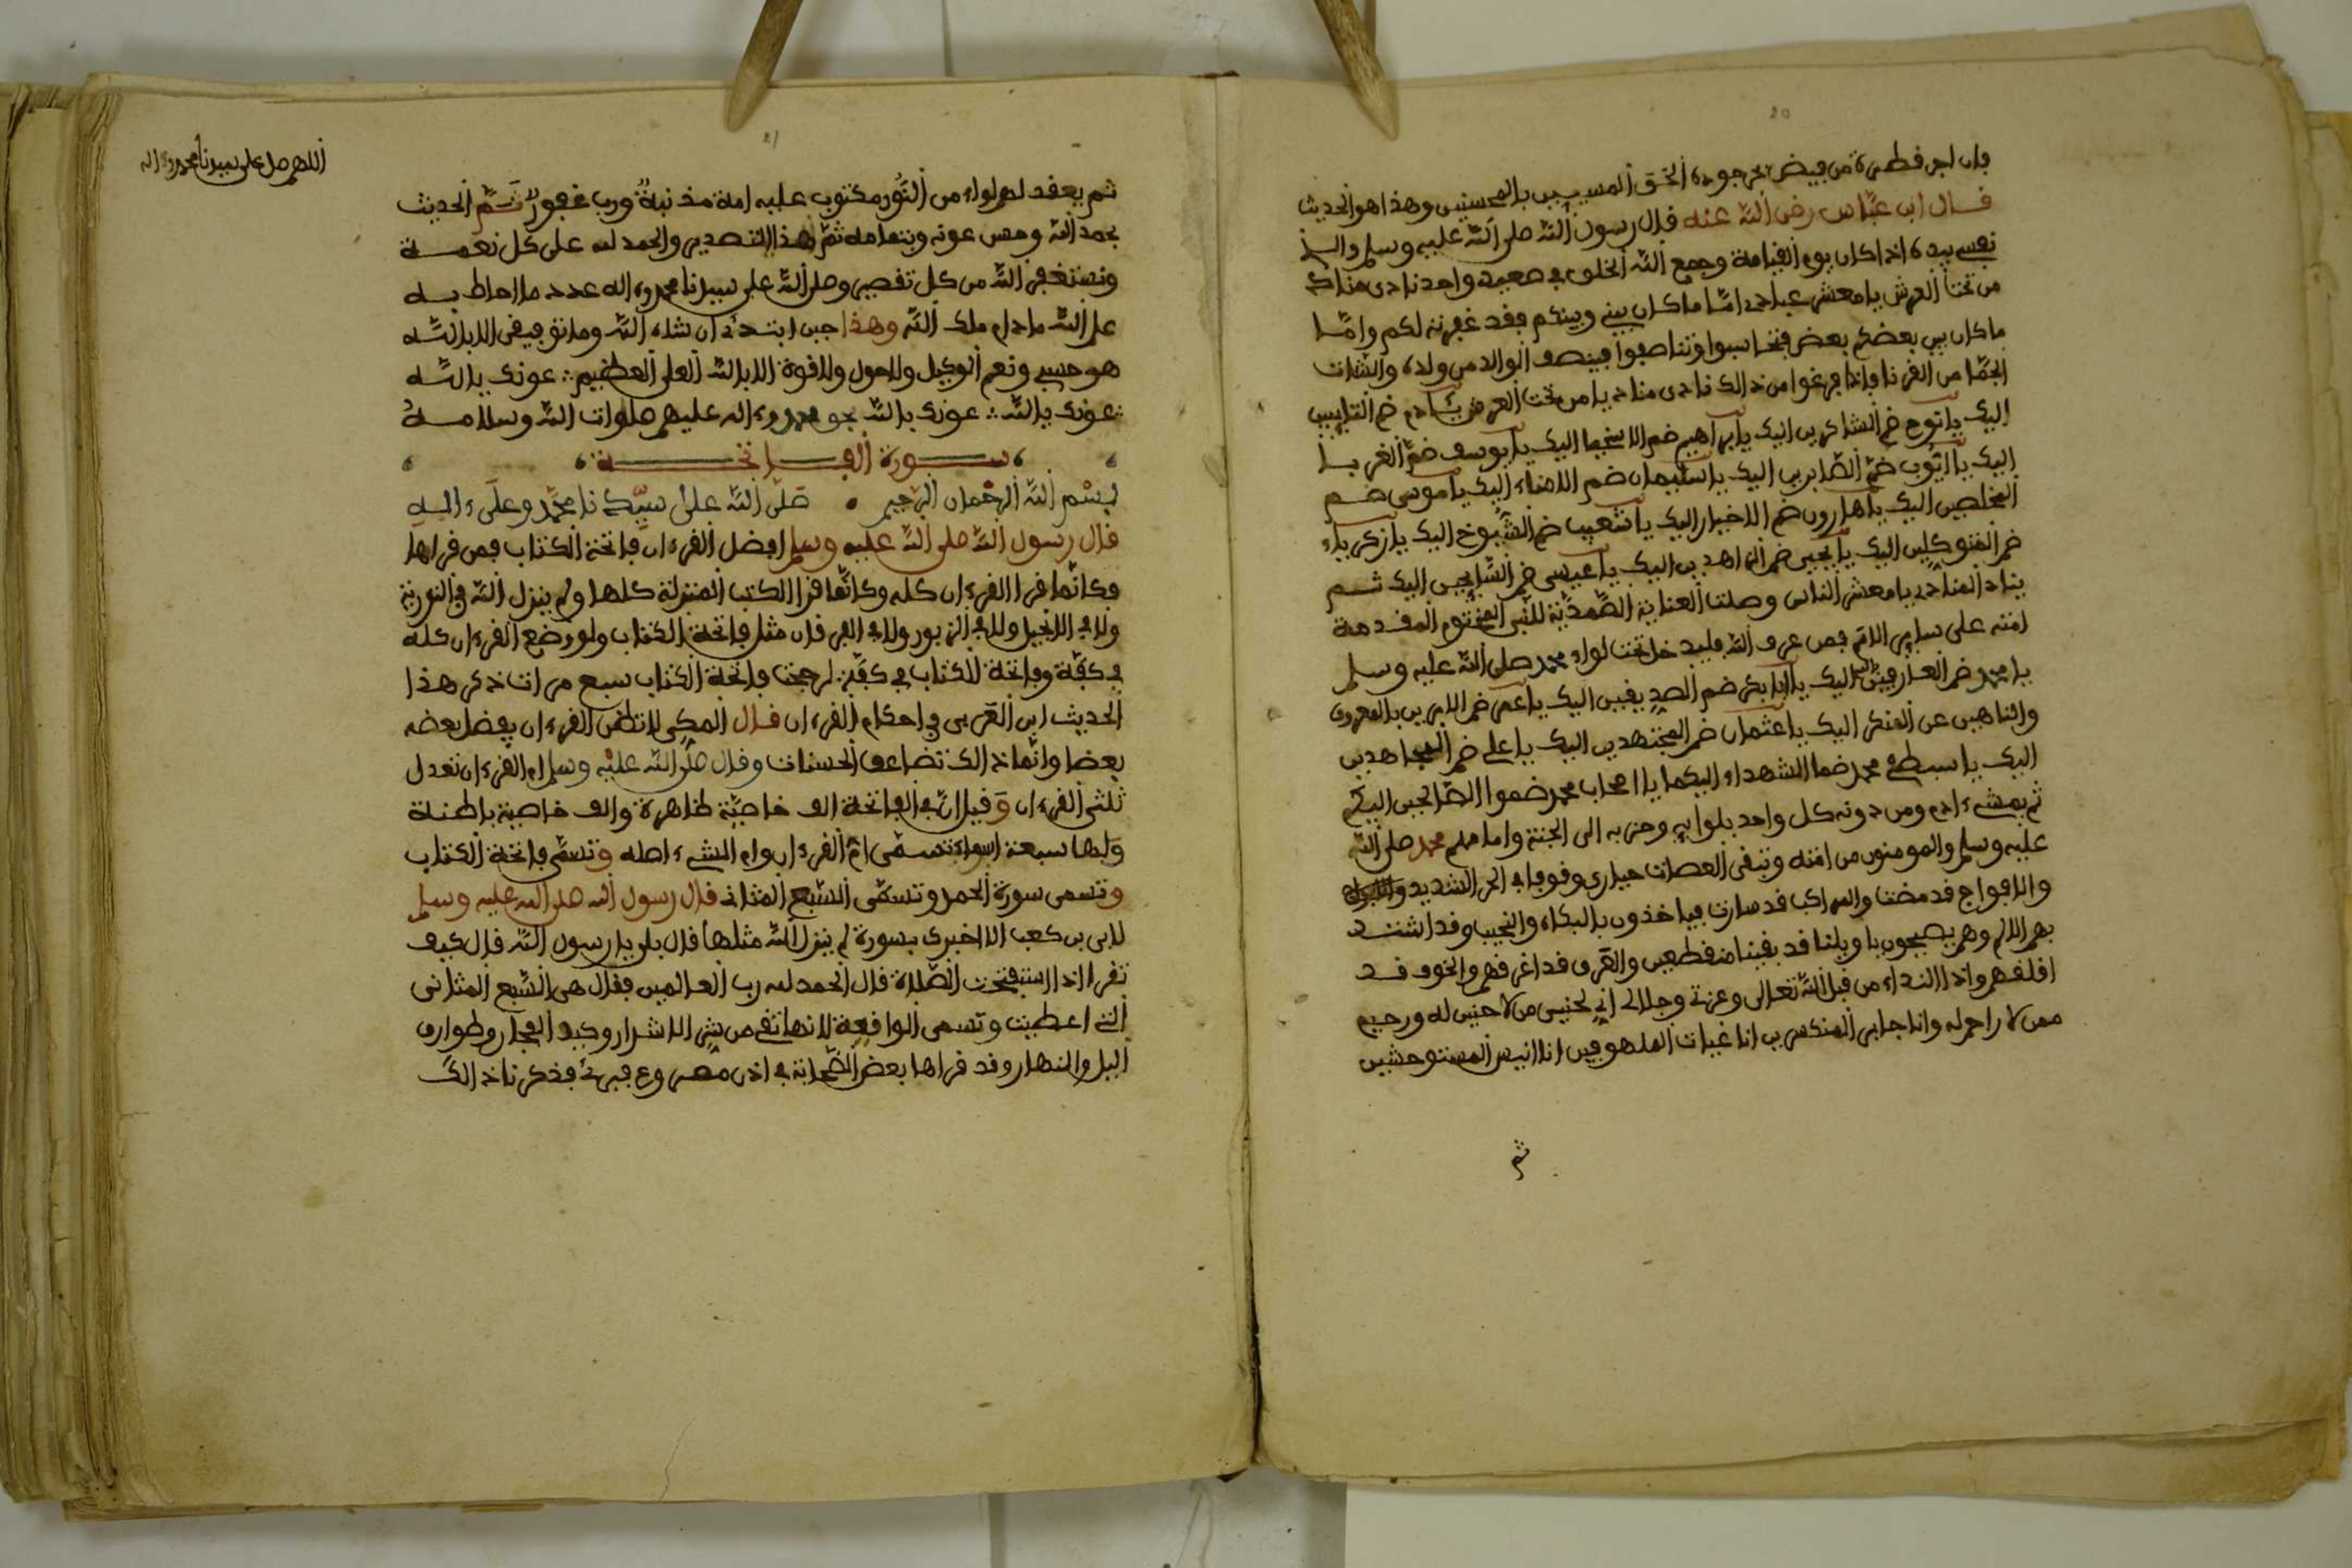 20
فان اجر قطرة من فيض بحر جوده الحق المسيين بالمحسنين وهذا هو الحديث
قال ابن عباس رضى الله عنه قال رسول الله صلى الله عليه وسلم والذ
نفسى بيده اذا كان يوم القيامة وجمع الله الخلق في صعيد واحد نادى مناد
من تحت العرش يا معشر عبادى امّا ما كان بينى وبينكم فقد غفرته لكم وامّا
ما كان بين بعضكم بعض فتحاسبوا وتناصفوا فينصف الوالد من ولده والشات
الجمّا من القرنا فاذا فرغوا من ذالك نادى مناد يا من تحت العرش يا ادم ضم التايبين
اليك يا نوح ضم الشاكرين اليك يا براهيم ضم الاسخيا اليك يا يوسف ضمّ الغربا
اليك يا ايّوب ضمّ الصّابرين اليك يا سليمان ضم الامناء اليك يا موسى ضم
المخلصين اليك يا هارون ضم الاخيار اليك يا شعيب ضم الشّيوخ اليك يا زكرياء
ضم المتوكلين اليك يا يحيى ضم الزاهدين اليك يا عيسى ضم السّايحين اليك ثم
يناد المنادى يا معشر الناس وصلت العناية الصّمديّة للنّبى المختوم المقدمة
امته على ساير الامم فمن عرف الله فليدخل تحت لواء محمد صلى الله عليه وسلم
يا محمد ضم العارفين اليك يا ابا بكر ضم الصديقين اليك يا عمر ضم الامرين بالمعروف
والناهين عن المنكر اليك يا عثمان ضم المجتهدين اليك يا على ضم المجاهدين
اليك يا سبطى محمد ضما الشهداء اليكما يا اصحاب محمد ضموا الصّالحين اليكم
ثم يمشى ءادم ومن دونه كل واحد بلوايه وحزبه الى الجنة وامامهم محمد صلى الله
عليه وسلم والمومنون من امته وتبقى العصات حيارى وقوفا في الحر الشديد
والافواج قد مضت والمراكب قد سارت فياخذون بالبكاء والنحيب وقد اشتد
بهم الالم وهم يصيحون يا ويلنا قد بقينا منقطعين والعَرق قد اغرقهم والخوف قد
اقلقهم واذا النداء من قبل الله تعالى وعزتى وجلالى انى لحنين من لا حنين له ورحيم
ممن لا راحم له وانا جابر المنكسرين انا غياث الملهوفين انا انيس المستوحشين
ثم
21
اللهم صل على سيدنا محمد وءاله
ثم يعقد لهم لواء من النّور مكتوب عليه امة مذنبة ورب غفور تم الحديث
بحمد الله وحسن عونه وبتمامه تمّ هذا التصدير والحمد لله على كل نعمة
ونستغفر الله من كل تقصير وصلى الله على سيدنا محمد وءاله عدد ما احاط به
علم الله ما دام ملك الله وهذا حين ابتدئ ان شاء الله وما توفيقى الا بالله
هو حسبى ونعم الوكيل ولا حول ولا قوة الا بالله العلى العظيم عونك يا الله
عونك يا الله عونك يا الله بحق محمد وءاله عليهم صلوات الله وسلامه
سورة الفاتحة
بسم الله الرحمان الرحيم صلى الله على سيّدنا محمّد وعلى ءاله
قال رسول الله صلى الله عليه وسلم افضل القرءان فاتحة الكتاب فمن قراها
فكانّما قرا القرءان كله وكانّما قرا الكتب المنزلة كلها ولم ينزل الله في التورية
ولا في الانجيل ولا في الزبور ولا في الفرقان مثل فاتحة الكتاب ولو وضع القرءان كله
في كفّة وفاتحة الكتاب في كفّة لرجحت فاتحة الكتاب سبع مرات ذكر هذا
الحديث ابن العربى في احكام القرءان قال المكى لا تظن القرءان يفضل بعضه
بعضا وانّما ذالك تضاعف الحسنات وقال صلى الله عليه وسلم ام القرءان تعدل
ثلثى القرءان وقيل انّ في الفاتحة الف خاصيّة ظاهرة والف خاصية باطنة
ولها سبعة اسماء تسمّى امّ القرءان وام الشىء اصله وتسمّى فاتحة الكتاب
وتسمى سورة الحمد وتسمّى السّبع المثانى قال رسول الله صلى الله عليه وسلم
لابى بن كعب الا اخبرك بسورة لم ينزل الله مثلها قال بلى يا رسول الله قال كيف
تقرا اذا استفتحت الصّلاة قال الحمد لله رب العالمين فقال هى السّبع المثانى
التى اعطيت وتسمى الواقية لانها تقى من شر الاشرار وكيد الفجار وطوارق
اليل والنهار وقد قراها بعض الصّحابة في اذن مصروع فبرئ فذكرنا ذالك